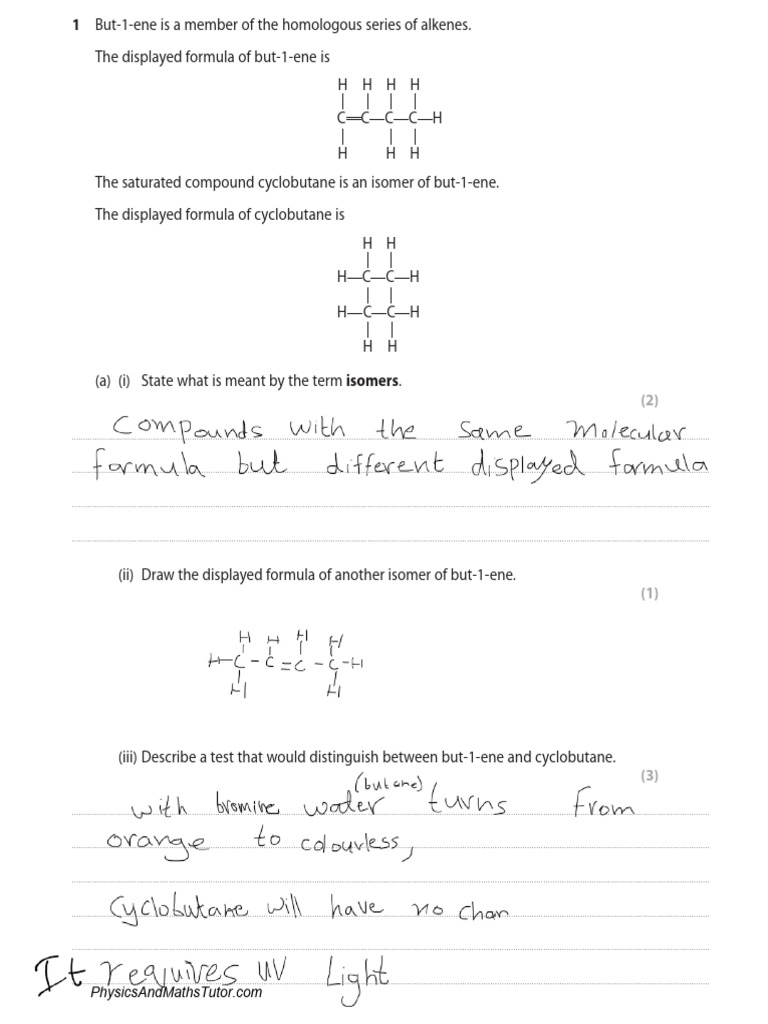 1 But-1-ene is a member of the homologous series of alkenes.
The displayed formula of but-1-ene is
H H H H
C=C—C—C—H
H H H
The saturated compound cyclobutane is an isomer of but-1-ene.
The displayed formula of cyclobutane is
H H
H—C—C—H
H—C—C—H
H H
(a) (i) State what is meant by the term isomers.
(2)
Compounds with the same molecular
formula but different displayed formula
(ii) Draw the displayed formula of another isomer of but-1-ene.
(1)
H H H H
H-C-C=C-C-H
H H
(iii) Describe a test that would distinguish between but-1-ene and cyclobutane.
(3)
(butane)
with bromine water turns from
orange to colourless,
Cyclobutane will have no chan
It requires UV Light
PhysicsAndMathsTutor.com